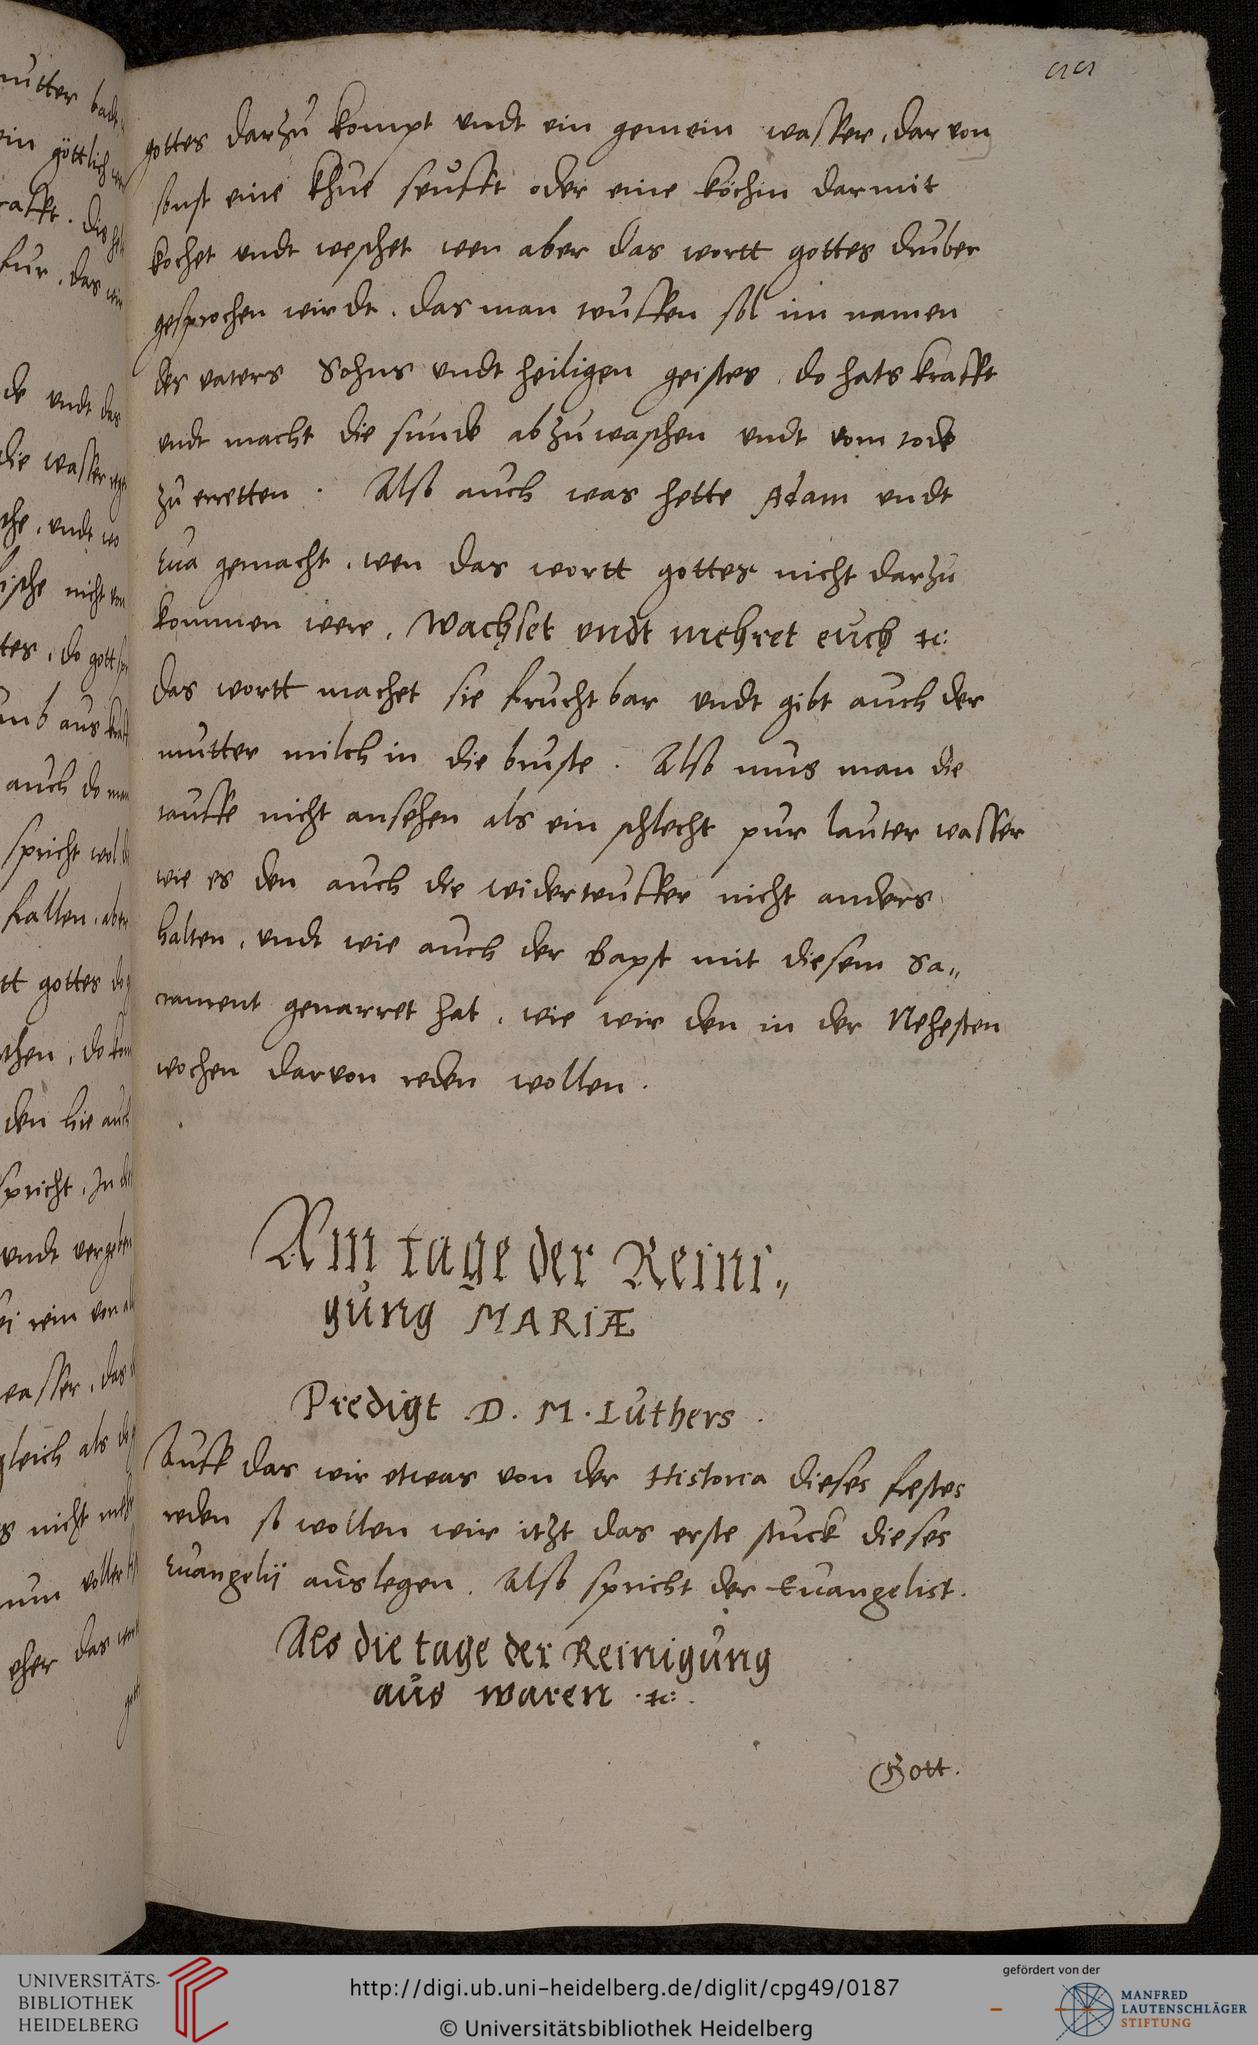 gottes darzu kompt undt ein gemein wasser, darvon
sonst eine khue seufft oder eine köchin darmit
kochet undt weschet wen aber das wortt gottes druber
gesprochen wirdt. das man teuffen sol im namen
des vaters Sohns undt heiligen geistes, do hats krafft
undt macht die sunde abzuwaschen undt vom tode
zu erretten. Also auch was hette Adam undt
Eva gemacht, wen das wortt gottes nicht darzu
kommen were, Wachset undt mehret euch ꝛc:
das wortt machet sie fruchtbar undt gibt auch der
mutter milch in die bruste. Also mus man die
tauffe nicht ansehen als ein schlecht pur lauter wasser
wie es den auch die widerteuffer nicht anders
halten, undt wie auch der Bapst mit diesem Sa„
crament genarret hat, wie wir den in der Nehesten
wochen darvon reden wollen.
Am tage der Reini„
gung MARIÆ
Predigt D. M. Luthers.
Auff das wir etwas von der Historia dieses festes
reden so wollen wir itzt das erste stuck dieses
Evangelij auslegen. Also spricht der Evangelist.
Als die tage der Reinigung
aus waren ꝛc:.
Gott.
mutter
ein göttlich
krafft. die
fur, das
de undt das
die wasser
undt wo
fische nicht von
do gott
aus
auch do man
spricht wol
fallen, aber
gottes
den hie auch
spricht, In
undt
wasser, das
gleich als
nicht
nun voller
eher das
UNIVERSITÄTS-
BIBLIOTHEK
HEIDELBERG
http://digi.ub.uni-heidelberg.de/diglit/cpg49/0187
© Universitätsbibliothek Heidelberg
gefördert von der
MANFRED
LAUTENSCHLÄGER
STIFTUNG